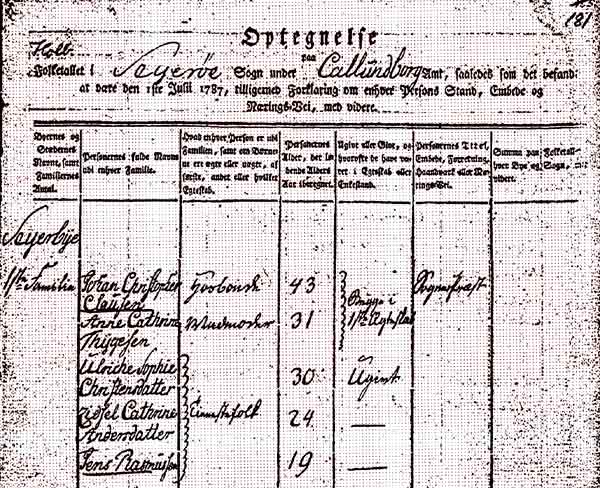 181
Holb.
Optegnelse
paa
Folketallet i Seyerøe Sogn under Callundborg Amt, saaledes som det befand-
at være den 1ste Julii 1787, tilligemed Forklaring om enhver Persons Stand, Embede og
Nærings-Vei, med videre.
Byernes og Stædernes Navne, samt Familiernes Antal.
Personernes fulde Navne udi enhver Familie.
Hvad enhver Person er udi Familien, samt om Børnene ere ægte eller uægte, af første, andet eller hvilket Egteskab.
Personernes Alder, det løbende Alders Aar iberegnet.
Ugivt eller Givt, og hvorofte de have været i Egteskab eller Enkestand.
Personernes Titel, Embede, Forretning, Haandverk eller Nærings-Vei.
Summa paa Folketallet i hver Bye og Sogn, m. videre.
Seyerbÿe
1ste Familie
Johan Christopher Clausen
Hosbonde
43
Begge i 1ste Ægteskab
Sognepræst
Anne Cathrine Thÿgesen
Madmoder
31
Ulriche Sophie Christensdatter
30
Ugivt
Cathrine Andersdatter
Tienestefolk
24
—
Jens Rasmussen
19
—